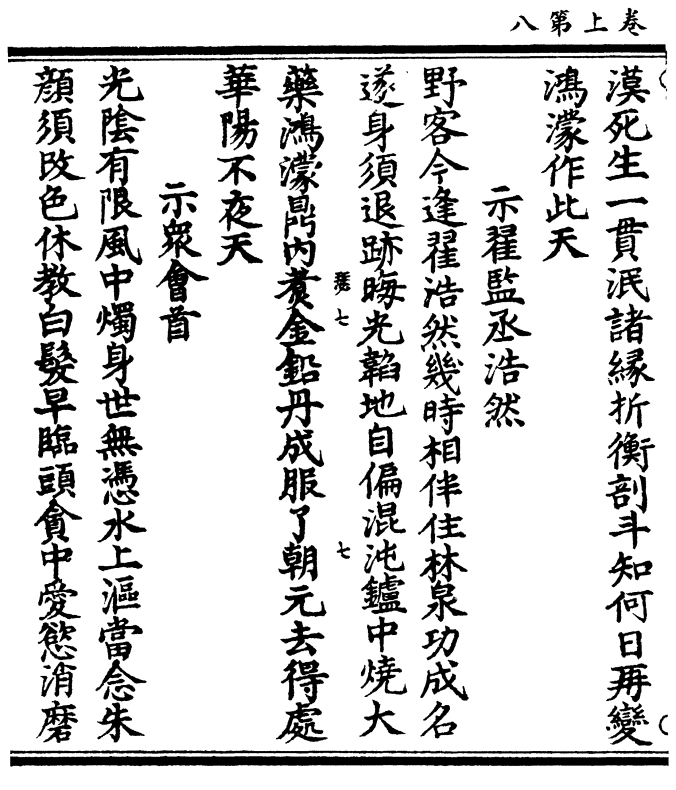 卷上第八
漠死生一貫泯諸緣折衡剖斗知何日再變
鴻濛作此天
示翟監丞浩然
野客今逢翟浩然幾時相伴住林泉功成名
遂身須退跡晦光韜地自偏混沌鑪中燒大
七
七
藥鴻濛鼎內煑金鉛丹成服了朝元去得處
華陽不夜天
示衆會首
光陰有限風中燭身世無憑水上漚當念朱
顔須改色休教白髮早臨頭貪中愛慾消磨